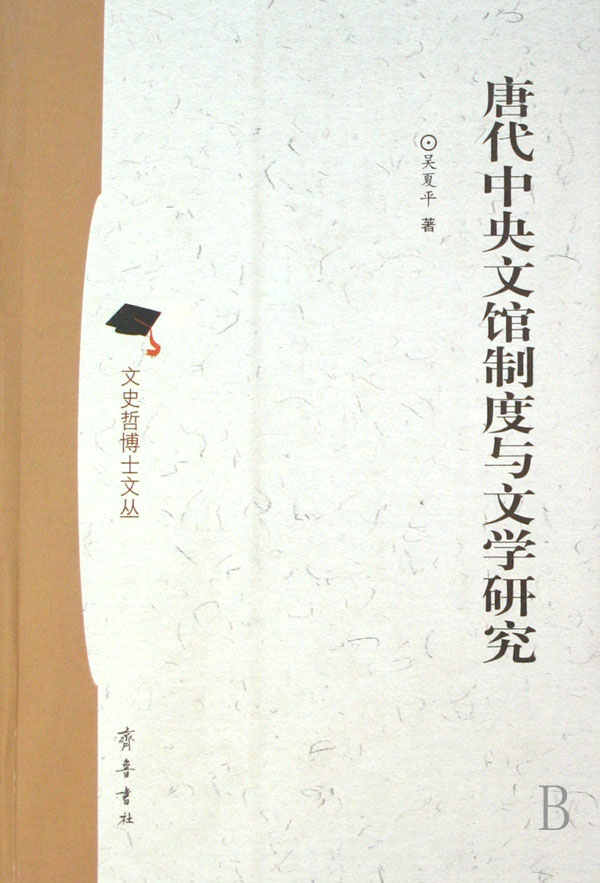 唐代中央文馆制度与文学研究
吴夏平 著
文史哲博士文丛
齊鲁書社
B